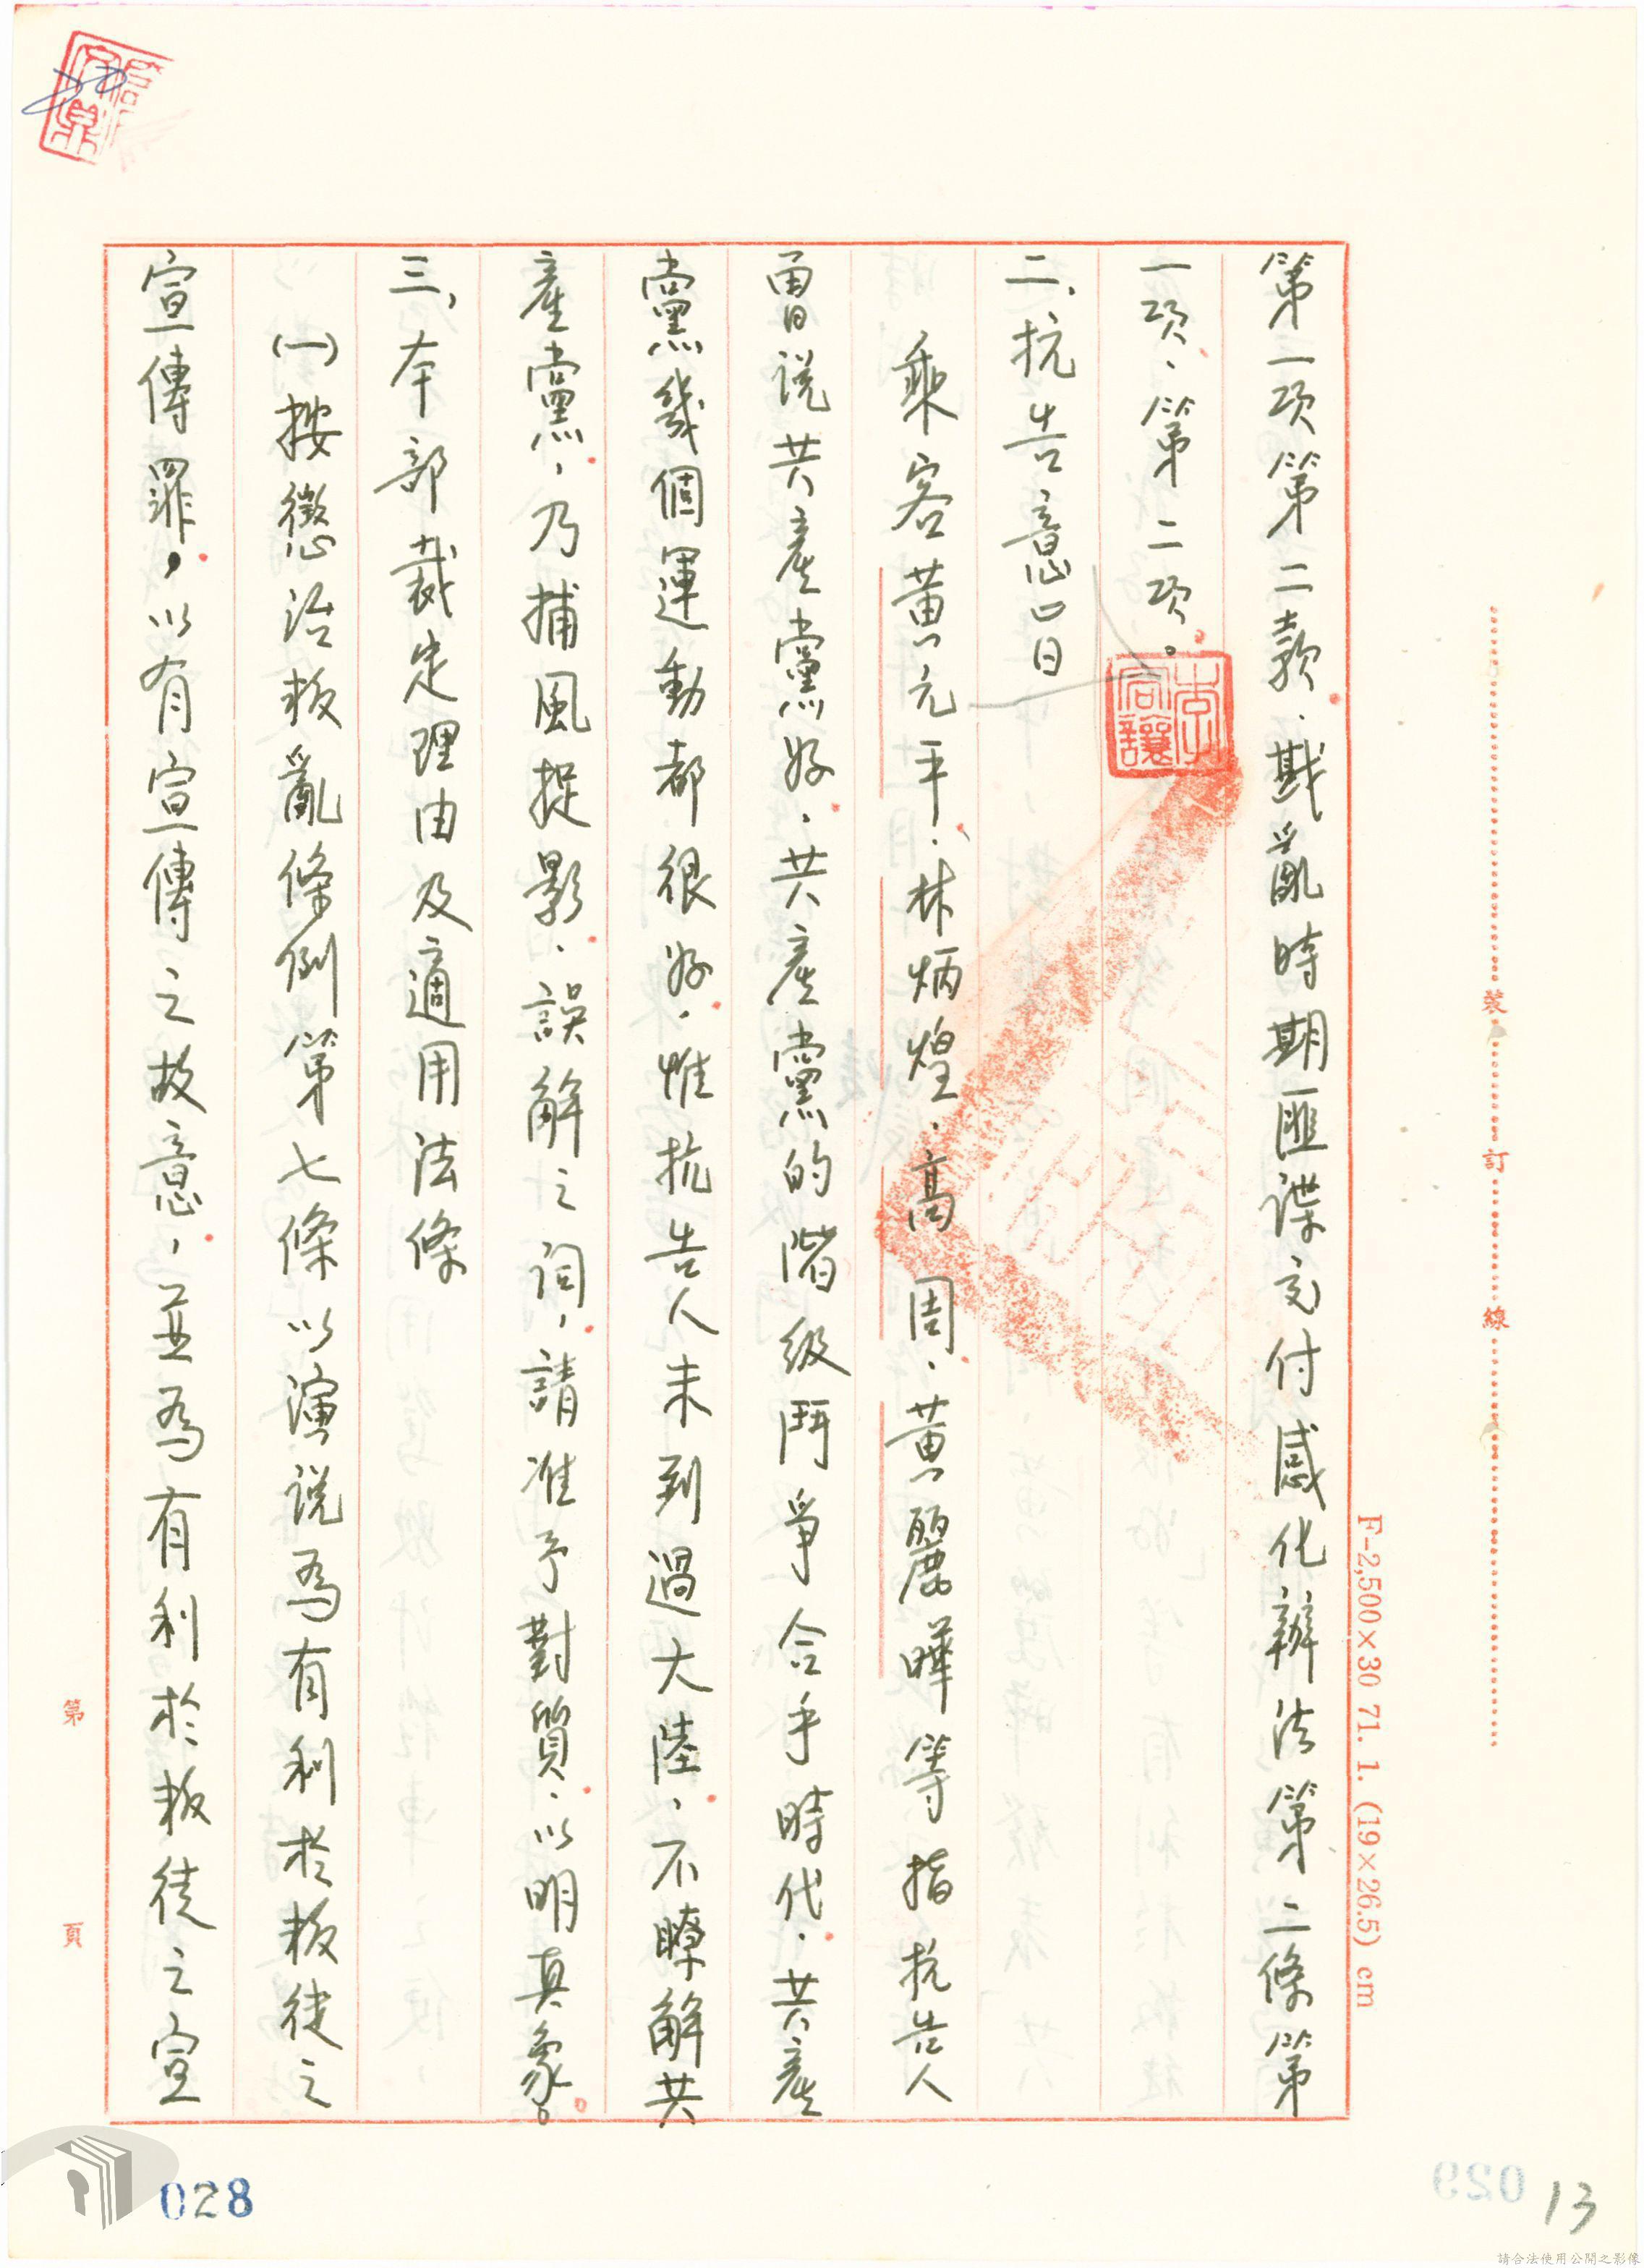 第一項第二款、戡亂時期匪諜交付感化辦法第二條第
一項、第二項。
二、抗告意旨
乘客黃元平、林炳煌、高周、黃麗曄等指抗告人
曾說共產黨好、共產黨的階級鬥爭合乎時代、共產
黨幾個運動都很好、惟抗告人未到過大陸、不瞭解共
產黨、乃捕風捉影、誤解之詞，請准予對質、以明真象。
三、本部裁定理由及適用法條
(一)按懲治叛亂條例第七條以演說為有利於叛徒之
宣傳罪，以有宣傳之故意，並為有利於叛徒之宣
裝 訂 線
F-2,500×30 71. 1. (19×26.5) cm
第 頁
028
029
13
請合法使用公開之影像